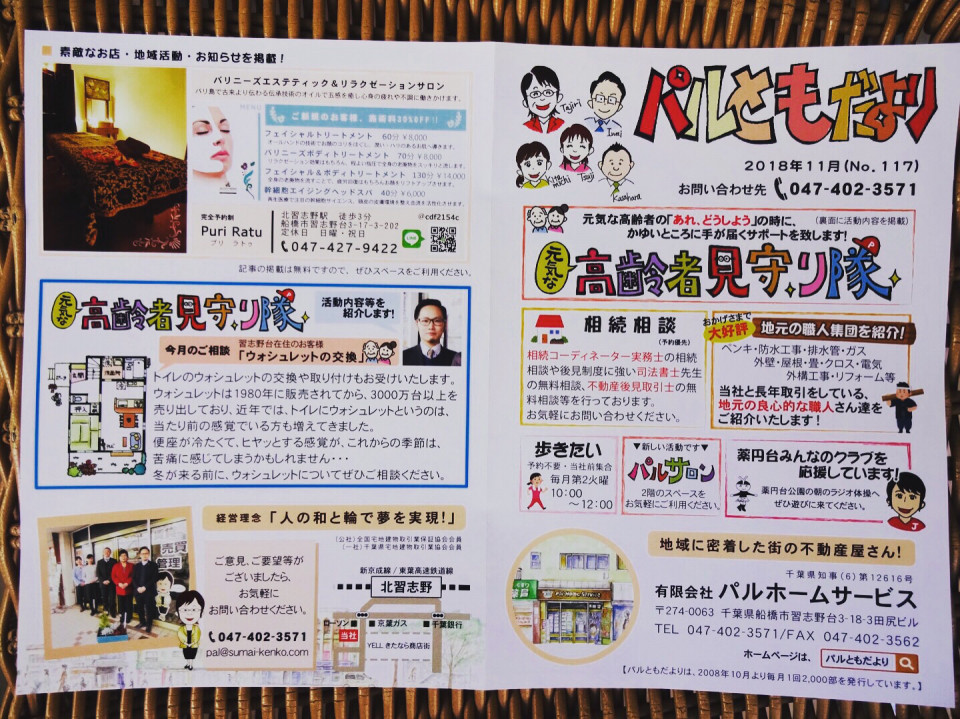 ■ 素敵なお店・地域活動・お知らせを掲載！
バリニーズエステティック＆リラクゼーションサロン
バリ島で古来より伝わる伝承技術のオイルで五感を癒し心身の疲れや不調に働きかけます。
フェイシャルトリートメント 60分￥8,000
バリニーズボディトリートメント 70分￥8,000
フェイシャル＆ボディトリートメント 130分￥14,000
幹細胞エイジングヘッドスパ 40分￥6,000
完全予約制
Puri Ratu
プリ ラトゥ
北習志野駅 徒歩3分
船橋市習志野台3-17-3-202
定休日 日曜・祝日
047-427-9422
@cdf2154c
LINE
記事の掲載は無料ですので、ぜひスペースをご利用ください。
元気な高齢者見守り隊
活動内容等を
紹介します！
今月のご相談
習志野台在住のお客様
「ウォシュレットの交換」
トイレのウォシュレットの交換や取り付けもお受けいたします。
ウォシュレットは1980年に販売されてから、3000万台以上を
売り出しており、近年では、トイレにウォシュレットというのは、
当たり前の感覚でいる方も増えてきました。
便座が冷たくて、ヒヤッとする感覚が、これからの季節は、
苦痛に感じてしまうかもしれません・・・
冬が来る前に、ウォシュレットについてぜひご相談ください。
押入
経営理念 「人の和と輪で夢を実現！」
(公社)全国宅地建物取引業保証協会会員
(一社)千葉県宅地建物取引業協会会員
売買
管理
ご意見、ご要望等が
ございましたら、
お気軽に
お問い合わせください。
047-402-3571
pal@sumai-kenko.com
新京成線/東葉高速鉄道線
北習志野
ローソン
京葉ガス
千葉銀行
当社
YELL きたなら商店街
Tajiri
Inai
Kitamichi
Tsuji
Kasahara
パルともだより
2018年11月(No.117)
お問い合わせ先 047-402-3571
元気な高齢者の「あれ、どうしよう」の時に、
(裏面に活動内容を掲載)
かゆいところに手が届くサポートを致します！
元気な高齢者見守り隊
P
相続相談
(予約優先)
相続コーディネーター実務士の相続
相談や後見制度に強い司法書士先生
の無料相談、不動産後見取引士の無
料相談等を行っております。
お気軽にお問い合わせください。
おかげさまで
大好評
地元の職人集団を紹介！
ペンキ・防水工事・排水管・ガス
外壁・屋根・畳・クロス・電気
外構工事・リフォーム等
当社と長年取引をしている、
地元の良心的な職人さん達を
ご紹介いたします！
歩きたい
予約不要・当社前集合
毎月第2火曜
10:00
～12:00
▼新しい活動です▼
パルサロン
2階のスペースを
お気軽にご利用ください。
薬円台みんなのクラブを
応援しています！
薬円台公園の朝のラジオ体操へ
ぜひ遊びに来てください。
J
地域に密着した街の不動産屋さん！
千葉県知事(6)第12616号
有限会社 パルホームサービス
〒274-0063 千葉県船橋市習志野台3-18-3田尻ビル
TEL 047-402-3571/FAX 047-402-3562
ホームページは、 パルともだより
【パルともだよりは、2008年10月より毎月1回2,000部を発行しています。】